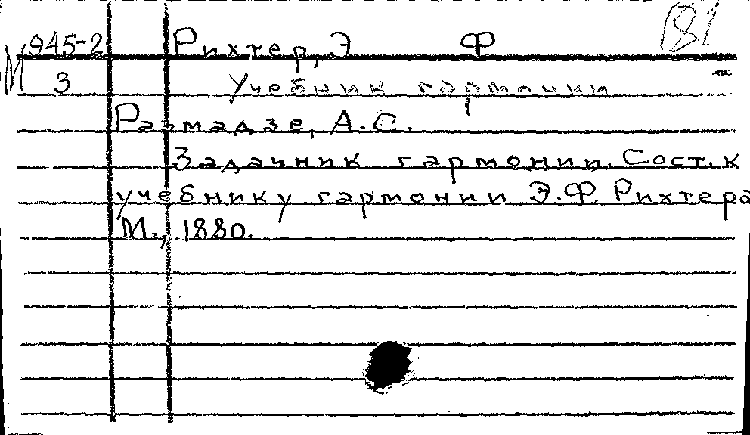 181
М 945-2 Рихтер, Э Ф
3 Учебник гармонии
Размадзе, А.С.
Задачник гармонии. Сост. к
учебнику гармонии Э.Ф. Рихтера
М., 1880.